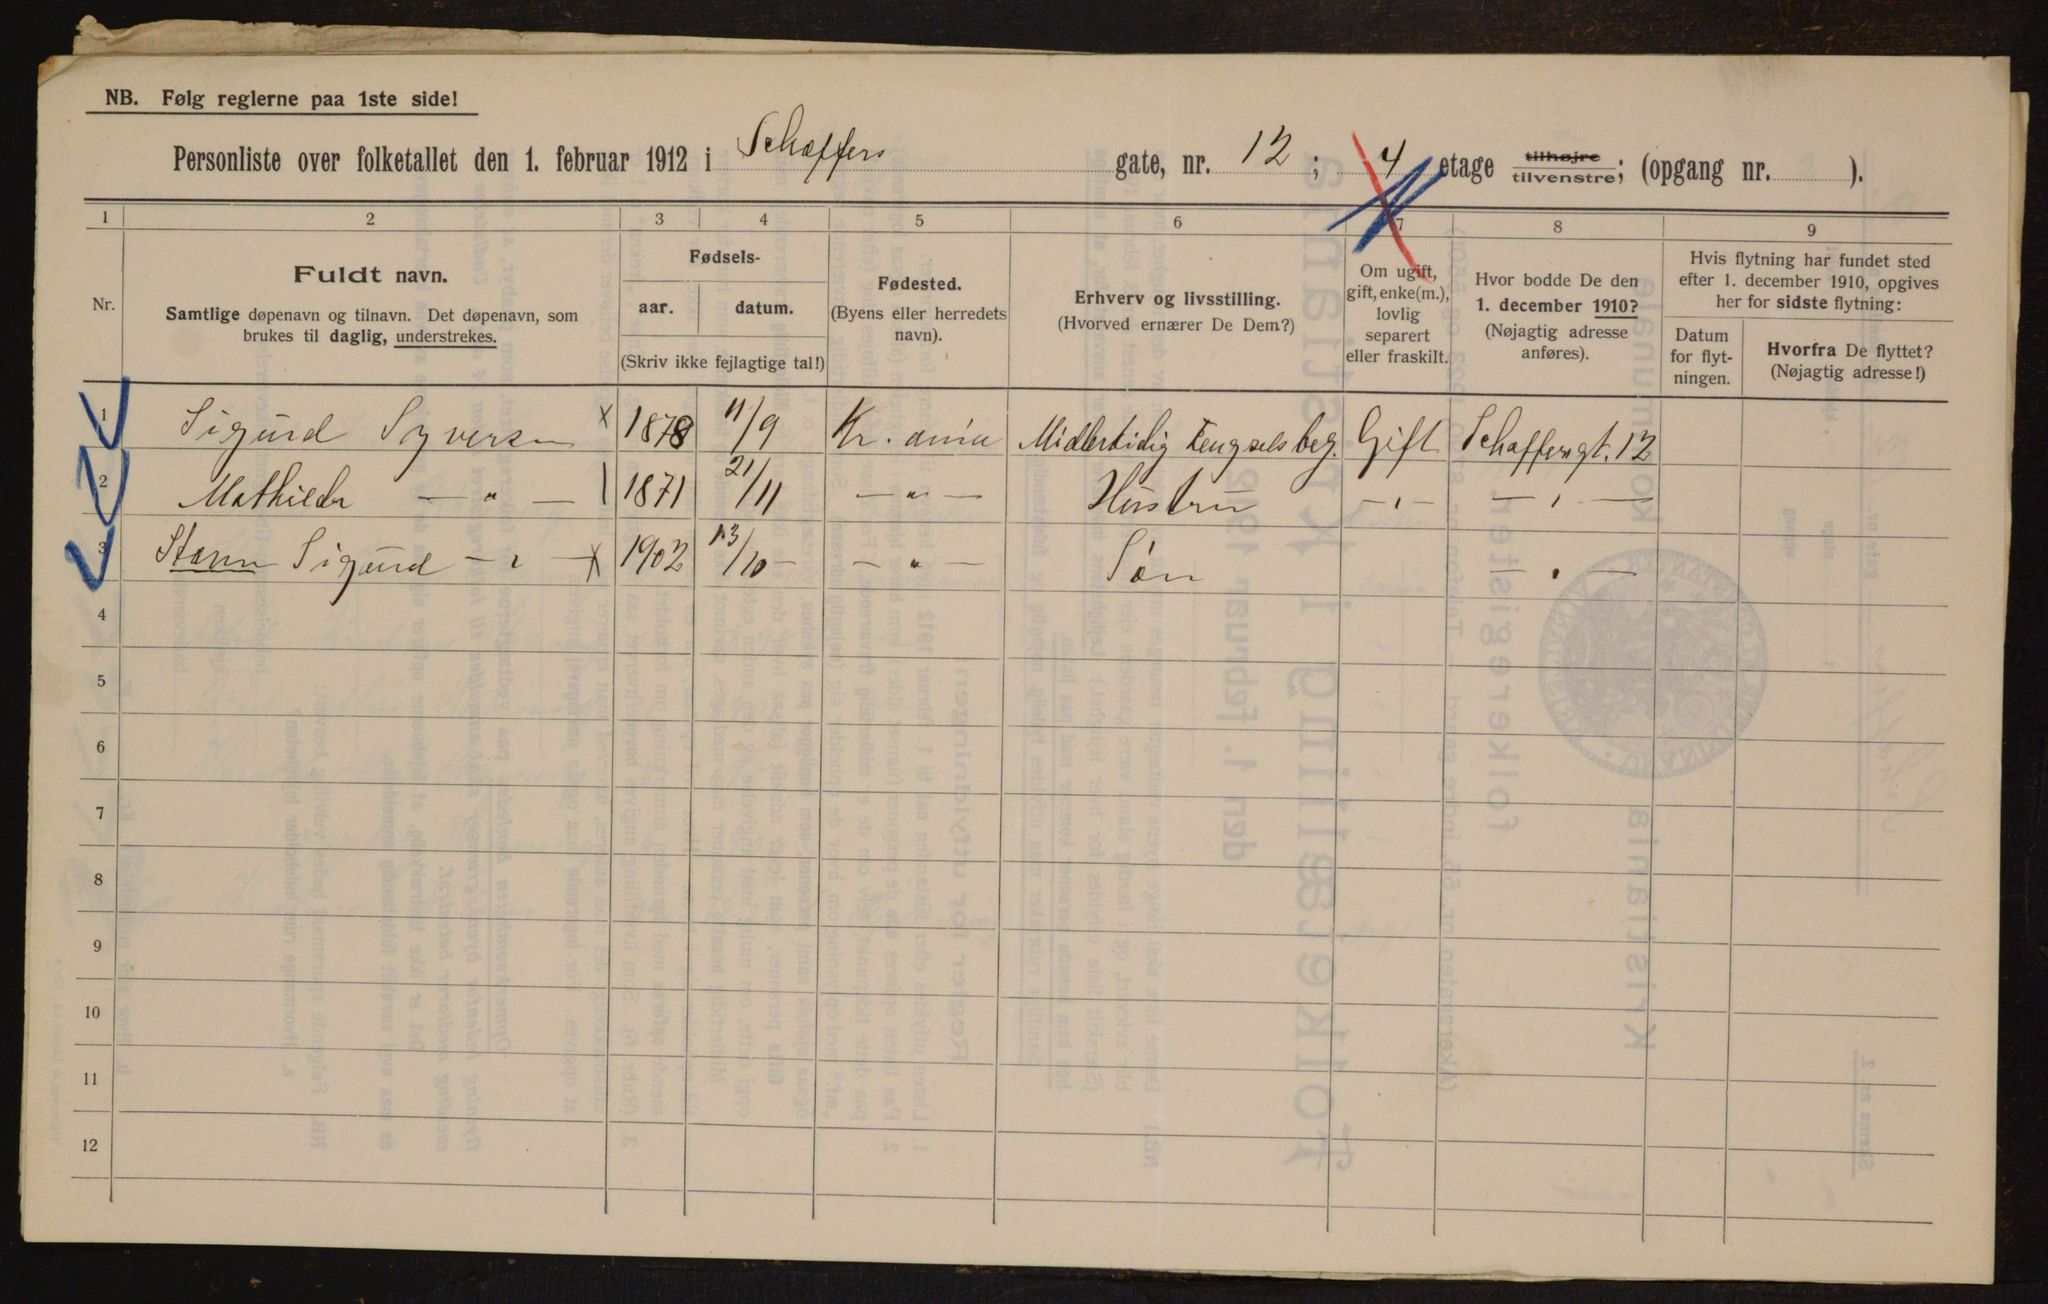 NB. Følg reglerne paa 1ste side!
Personliste over folketallet den 1. februar 1912 i Schæffers gate, nr. 12; 4 etage tilhøjre tilvenstre; (opgang nr. ).
1 2 3 4 5 6 7 8 9
Nr.
Fuldt navn.
Samtlige døpenavn og tilnavn. Det døpenavn, som
brukes til daglig, understrekes.
Fødsels-
aar. datum.
(Skriv ikke fejlagtige tal!)
Fødested.
(Byens eller herredets
navn).
Erhverv og livsstilling.
(Hvorved ernærer De Dem?)
Om ugift,
gift, enke(m.),
lovlig
separert
eller fraskilt.
Hvor bodde De den
1. december 1910?
(Nøjagtig adresse
anføres).
Hvis flytning har fundet sted
efter 1. december 1910, opgives
her for sidste flytning:
Datum
for flyt-
ningen.
Hvorfra De flyttet?
(Nøjagtig adresse!)
1 Sigurd Syversen x 1878 11/9 Kr.ania Midlertidig Fengselsbeg. Gift Schæffersgt. 12
2 Mathilde — " — 1871 21/11 — " — Hustru — " — — " —
3 Sigurd — " — x 1902 13/10 — " — Søn — " —
4
5
6
7
8
9
10
11
12